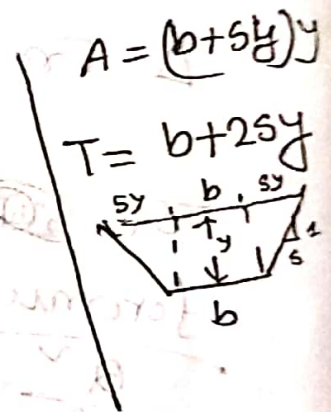 A = (b+sy)y
T = b+2sy
sy b sy
y
1
s
b